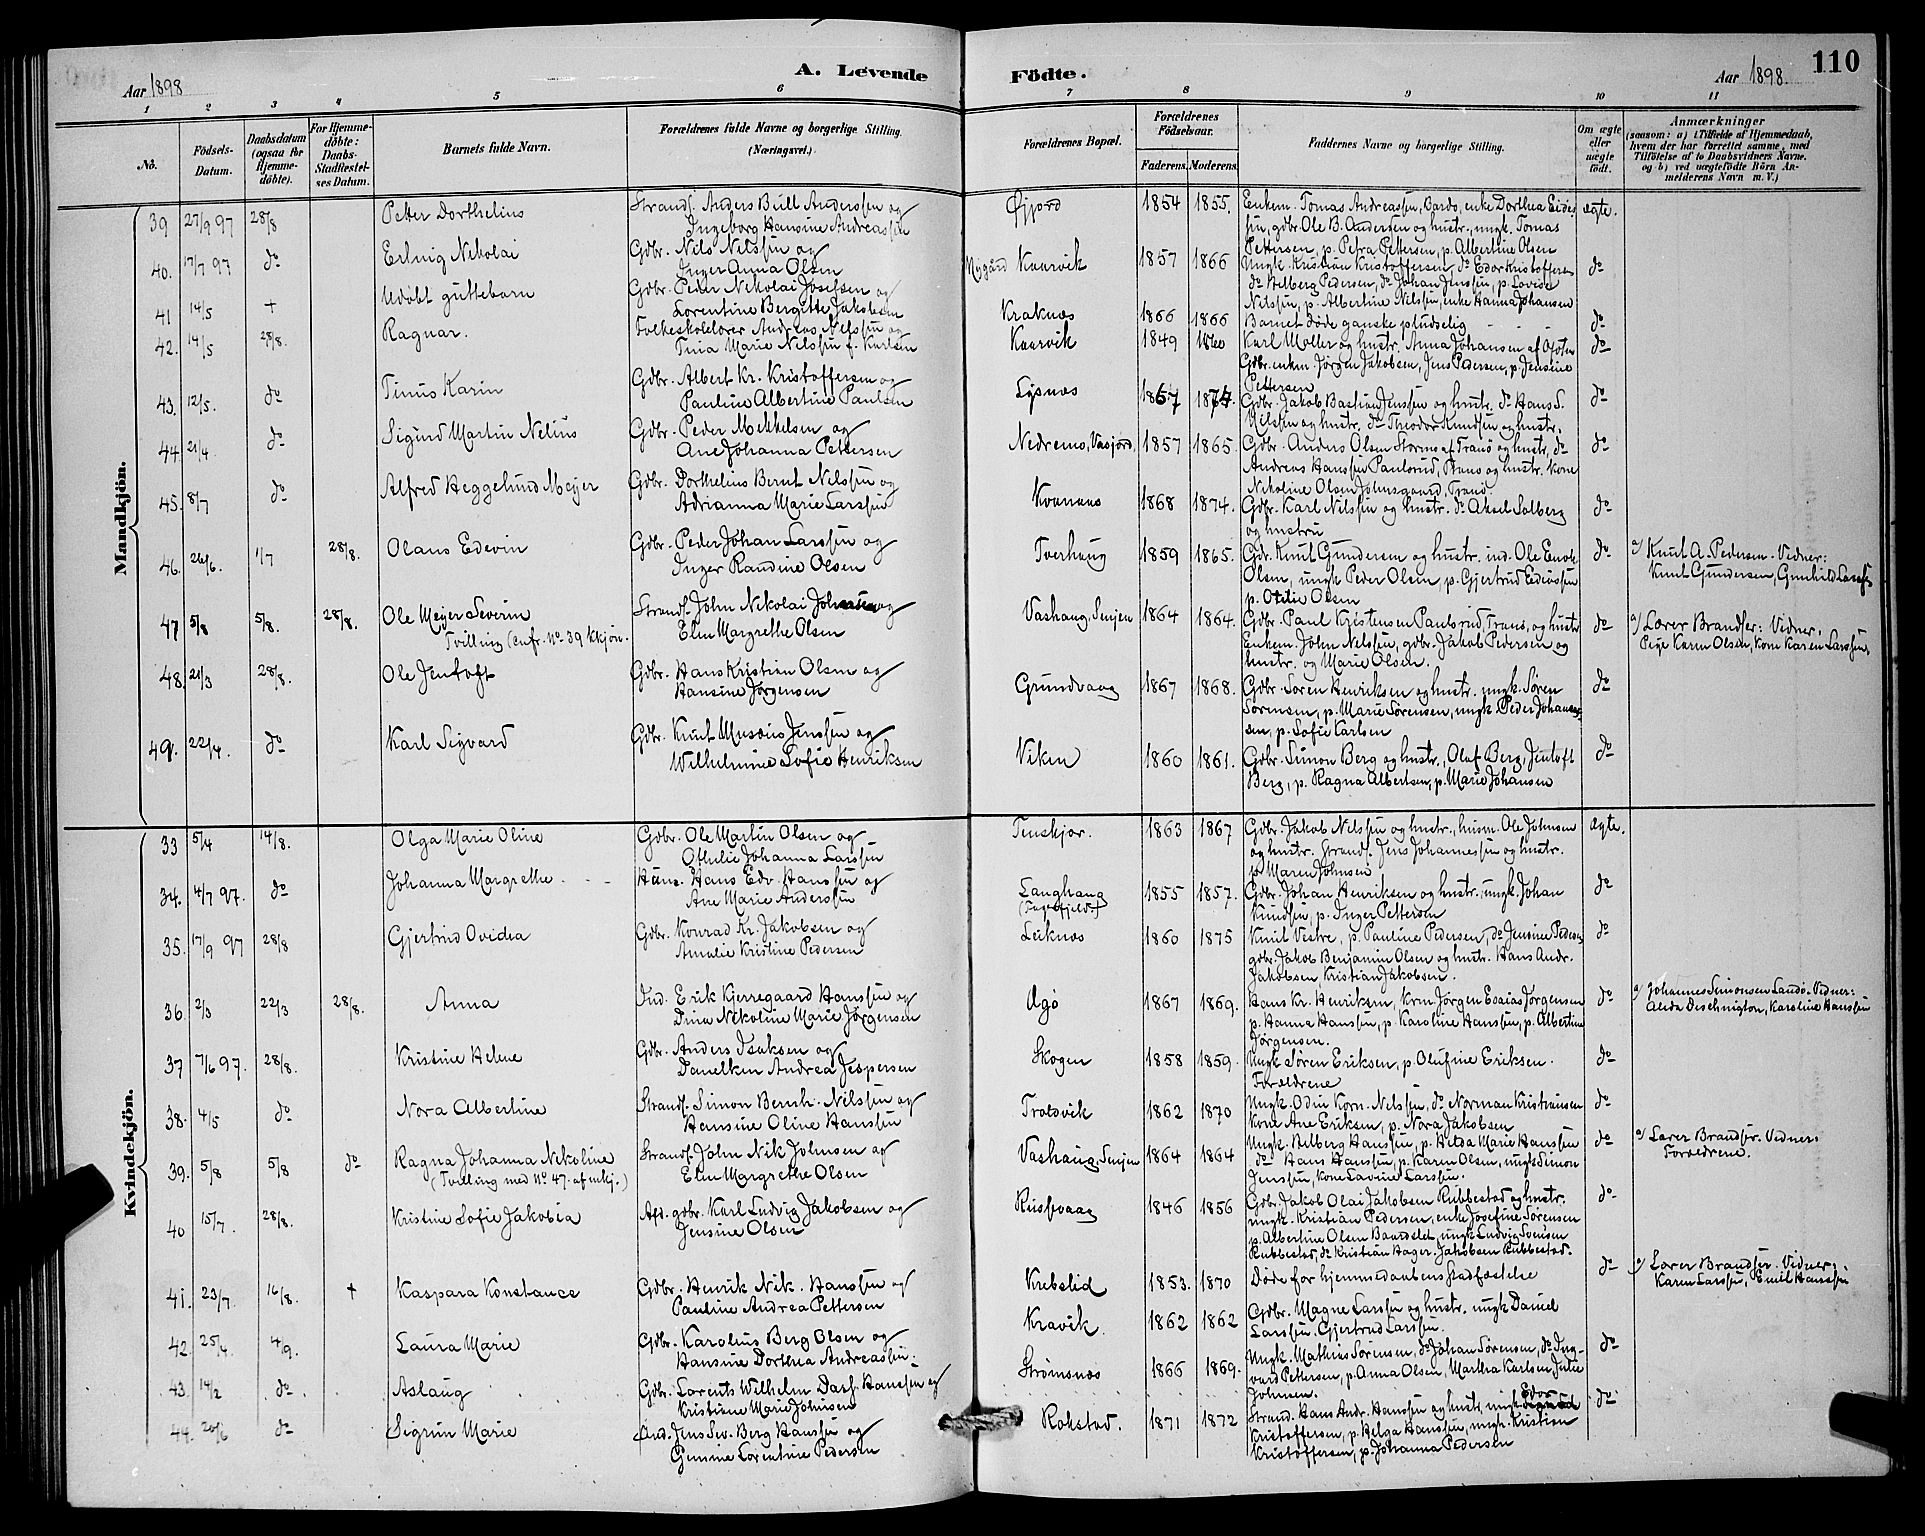 110
A. Levende Födte.
Aar 1898
Aar 1898.
1 2 3 4 5 6 7 8 9 10 11
No. Födsels-Datum. Daabsdatum (ogsaa for Hjemme-döbte). For Hjemme-döbte: Daabs-Stadfæstel-ses Datum. Barnets fulde Navn. Forældrenes fulde Navne og borgerlige Stilling. (Næringsvei.) Forældrenes Bopæl. Forældrenes Födselsaar. Faderens. Moderens. Faddernes Navne og borgerlige Stilling. Om ægte eller uægte födt. Anmærkninger (saasom: a) i Tilfælde af Hjemmedaab, hvem der har forrettet samme, med Tilföielse af to Daabsvidners Navne, og b) ved uægtefödte Börn An-melderens Navn m. V.)
Mandkjön.
39 27/9 97 28/8 Peter Dorthelius Strands. Anders Bull Anderssen og Øfjord 1854 1855. Enkem. Tomas Andreassen, Bardo, enke Dorthea Eides ægte.
Ingeborg Hansine Andreassen sen, gdbr. Ole B. Andersen og hustr., ungk. Tomas
Pettersen, p. Petra Pettersen, p. Albertine Olsen
40. 17/7 97 do Erling Nikolai Gdbr. Nils Nilssen og Nygård Kaarvik 1857 1866 Ungk. Kristian Kristoffersen, do Edor Kristoffersen do
Inger Anna Olsen do Helberg Pedersen, do Johan Jenssen, p. Lovise
Nilssen, p. Albertine Nilssen, enke Hanna Johansen
41 14/5 + Udöbt guttebarn Gdbr. Peder Nikolai Josefsen og Kraknæs 1866 1866 Barnet døde ganske pludselig do
Lorentine Bergitte Jakobsen
42. 14/5 28/8. Ragnar. Folkeskolelærer Andreas Nilssen og Kaarvik 1849 1860 Karl Møller og hustr., Anna Johansen af do
Tina Marie Nilssen f. Karlsen Gdbr. enkm. Jørgen Jakobsen, Jens Pedersen, p. Jensine
Pettersen
43. 12/5. do Tinus Karin Gdbr. Albert Kr. Kristoffersen og Lysnes 1867 1874. Gdbr. Jakob Bastian Jenssen og hustr. do Hans S. do
Pauline Albertine Paulsen Nilsen og hustr., do Theodor Knudsen og hustr.
44. 21/4 do Sigurd Martin Nelius Gdbr. Peder Mekkelsen og Nedremo, Vasjord, 1857 1865. Gdbr. Anders Olsen Stormo af Tranö og hustr., do do
Ane Johanna Pettersen Andreas Hanssen Paulsrud, Tranö og hustr. Kone
Nikoline Olsen Johnsgaard, Tranö.
45. 8/7 do Alfred Heggelund Mejer Gdbr. Dorthelius Bernt Nilssen og Kvannaas 1868 1874. Gdbr. Karl Nilssen og hustr. do Aksel Solberg do
Adrianna Marie Larssen og hustru
46. 26/6. 1/7 28/8. Olaus Edevin Gdbr. Peder Johan Larssen og Tverhaug 1859 1865. Gdr. Knut Gundersen og hustr. ind. Ole Enok do a/ Knut A. Pedersen. Vidner:
Inger Randine Olsen Olsen, ungk. Peder Olsen, p. Gjertrud Edeassen Knut Gundersen, Gunhild Larssen
p. Otilie Olsen
47 5/8 5/8. 28/8. Ole Mejer Severin Strands. John Nikolai Johnsen og Vashaug, Senjen 1864 1864. Gdbr. Paul Kristensen Paulsrud, Tranö, og hustr. do a/ Lærer Brandser: Vidner.
Tvilling (cnfr. No 39 kkjön. Elen Margrethe Olsen Enkem. John Nelssen, gdbr. Jakob Pedersen og Pige Karen Olsen, Kone Karen Larssen.
hustr. og Marie Olsen.
48. 21/3 28/8. Ole Jentoft Gdbr. Hans Kristian Olsen og Grundvaag 1867 1868. Gdbr. Søren Henriksen og hustr. ungk. Søren do
Hansine Jørgensen Sørensen, p. Marie Sørensen, ungk. Peder Johannes-
sen, p. Sofie Carlsen
49. 22/4. do Karl Sigvard Gdbr. Knut Musæus Jenssen og Viken 1860 1861. Gdbr. Simon Berg og hustr., Olaf Berg, Jentoft do
Wilhelmine Sofie Henriksen Berg, p. Ragna Albertsen, p. Marie Johansen
Kvindekjön.
33 5/4 14/8. Olga Marie Oline Gdbr. Ole Martin Olsen og Tenskjær. 1863 1867 Gdbr. Jakob Nelssen og hustr., husm. Ole Johnsen ægte.
Othelie Johanna Larssen og hustr. Strands. Jens Johannessen og hustr.
p. Maren Johnsen
34. 4/7 97. do Johanna Margrethe Hans Edv. Hanssen og Langhaug 1855 1857. Gdbr. Johan Henriksen og hustr. ungk. Johan do
Ane Marie Anderssen Knudsen, p. Inger Pettersen
35. 17/9 97 28/8 Gjertrud Ovidea Gdbr. Konrad Kr. Jakobsen og Leiknes 1860 1875 Knut Vestre, p. Pauline Pedersen, do Jensine Pedersen do
Amalie Kristine Pedersen gdbr. Jakob Benjamin Olsen og hustr. Hans Andr.
Jakobsen, Kristian Jakobsen.
36. 2/3 22/3 28/8. Anna Ind. Erik Kjerregaard Hanssen og Agö 1867 1869. Hans Kr. Henriksen, Krm. Jørgen Esaias Jørgensen do a/ Johannes Simonsen Sandö. Vidner:
Dina Nikoline Marie Jørgensen p. Hanna Hanssen, p. Karoline Hanssen, p. Albertine Alida Deschnigton, Karoline Hanssen
Jørgensen.
37 7/6 97. 28/8. Kristine Helene Gdbr. Anders Isaksen og Skogen 1858 1859. Ungk. Søren Eriksen, p. Olufine Eriksen. do
Danelken Andrea Jespersen Forældrene
38. 4/5 do Nora Albertine Strands. Simon Bernh. Nilssen og Trolsvik 1862 1870 Ungk. Odin Korn. Nelssen, do Norman Kristiansen do
Hansine Oline Hanssen Kone Ane Eriksen, p. Nora Jakobsen
39. 5/8 5/8 do Ragna Johanna Nikoline Strands. John Nik. Johnsen og Vashaug, Senjen 1864 1864 Ungk. Helberg Hanssen, p. Hilda Marie Hanssen do a/ Lærer Brandser. Vidner:
(Tvilling med No 47. af mkj.) Elen Margrethe Olsen do Hans Hanssen, p. Karen Olsen, ungk. Simon Forældrene.
Jenssen, Kone Lavine Larssen.
40 15/7. 28/8. Kristine Sofie Jakobia Afd. gdbr. Karl Ludvig Jakobsen og Russevaag 1846 1856 Gdbr. Jakob Olai Jakobsen Rubbestad og hustr. do
Jensine Olsen ungk. Kristian Pedersen, enke Josefine Sørensen
p. Albertine Olsen Baardslet, ungk. Ludvig Svensen
Rubbestad, do Kristian Hager. Jakobsen Rubbestad.
41. 23/7. 16/8. + Kaspara Konstance Gdbr. Henrik Nik. Hanssen og Krebslid 1853. 1870 Døde før hjemmedaabens stadfæstelse do a/ Lærer Brandser. Vidner:
Pauline Andrea Pettersen Karen Larssen, Emil Hanssen
42. 25/4. 4/9. Laura Marie Gdbr. Karolius Berg Olsen og Kravik. 1862 1862 Gdbr. Magne Larssen og hustr. ungk. Daniel
Hansine Dorthea Andreassen. Larssen. Gjertrud Larssen.
43. 14/2 do Aslaug Gdbr. Lorents Wilhelm Hanssen og Strømsnes 1866 1869. Ungk. Mathias Sørensen, do Johan Sørensen, do Ing- do
Kristine Marie Johnsen vard Pettersen, p. Anna Olsen, Martha Karlsen, Julie
Johnsen.
44. 20/6 do Sigrun Marie Ind. Jens Sev. Berg Hanssen og Rokstad. 1871 1872 Strand. Hans Andr. Hanssen og hustr, ungk. Edor do
Gunine Lorentine Pedersen Kristoffersen, p. Helga Hanssen, ungk. Kristian
Kristoffersen, p. Johanna Pedersen